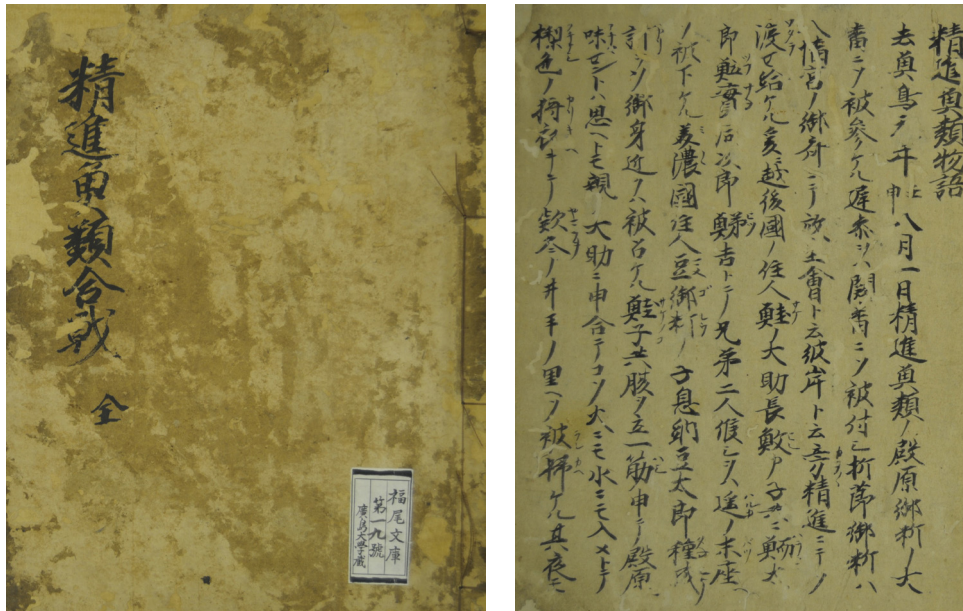 精進魚類合戦
全
福尾文庫
第一九號
廣島大學蔵
精進魚類物語
去魚鳥元年壬申八月一日精進魚類ノ殿原御析ノ大
番ニソ被参ケル遅参ヲハ闕番ニソ被付シ折節御析ハ
八幡宮ノ御斎ニテ放生會ト云彼岸ト云旁精進ニテノ
渡セ給ケル爰越後國ノ住人鮭ノ大助長 カ子共ニ 太
郎 實 次郎 吉トテ兄弟二人候シヲハ遥ノ末座ヘ
ノ被下ケル美濃國住人豆御析ノ子息納豆太郎種成
計ヲソ御身近クハ被召ケル鮭子共腹ヲ立一筋ノ申テ殿原
味セントハ思ヘトモ親 大助ニ申合テコソ火ニモ水ニモ入メトテ
色ノ狩衣キテ款冬ノ井手ノ里ヘソ被帰ケル其夜ニ